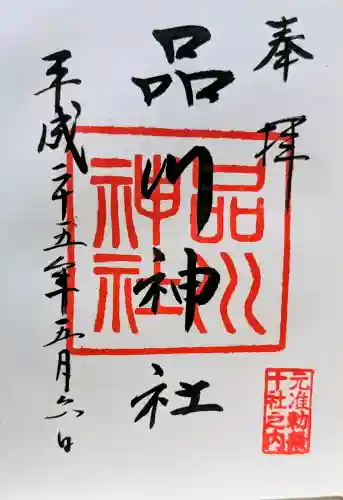 奉拝
品川神社
品川神社
元准勅裁
十社之内
平成二十五年五月六日